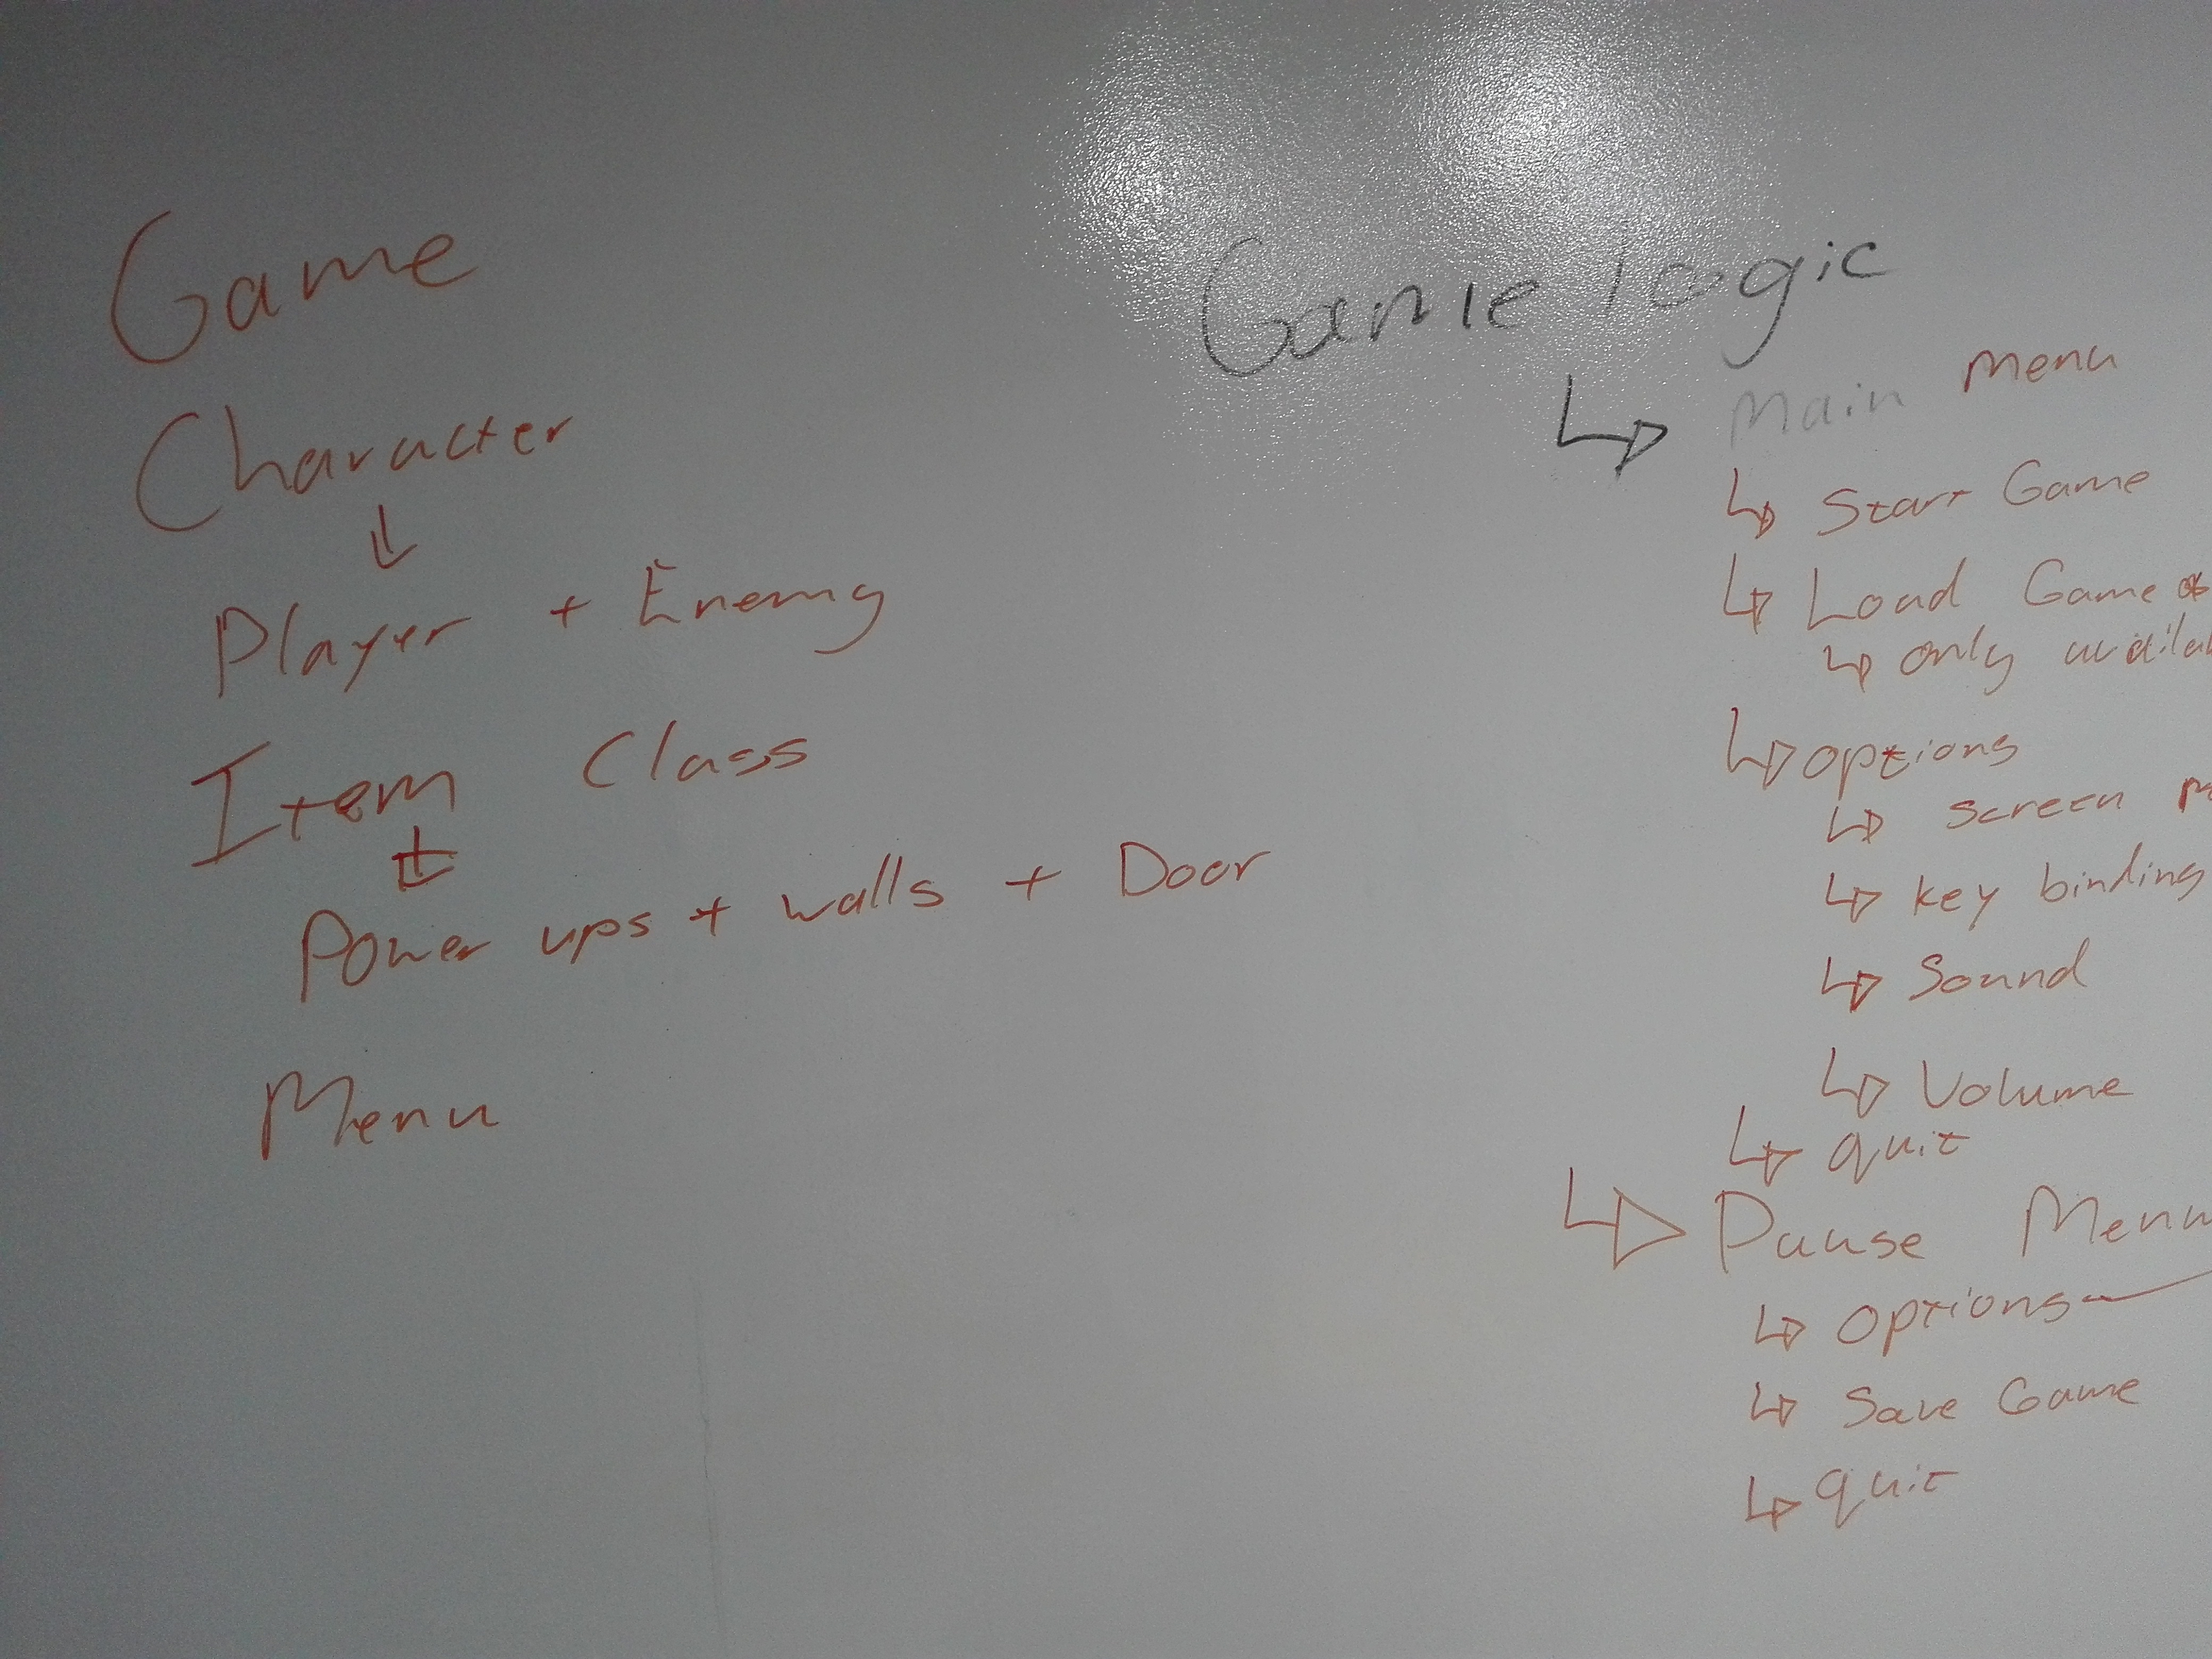 Game
Character
Player + Enemy
Item Class
Power ups + walls + Door
Menu
Game logic
Main Menu
Start Game
Load Game
only
options
Screen
key binding
Sound
Volume
quit
Pause Menu
options
Save Game
quit